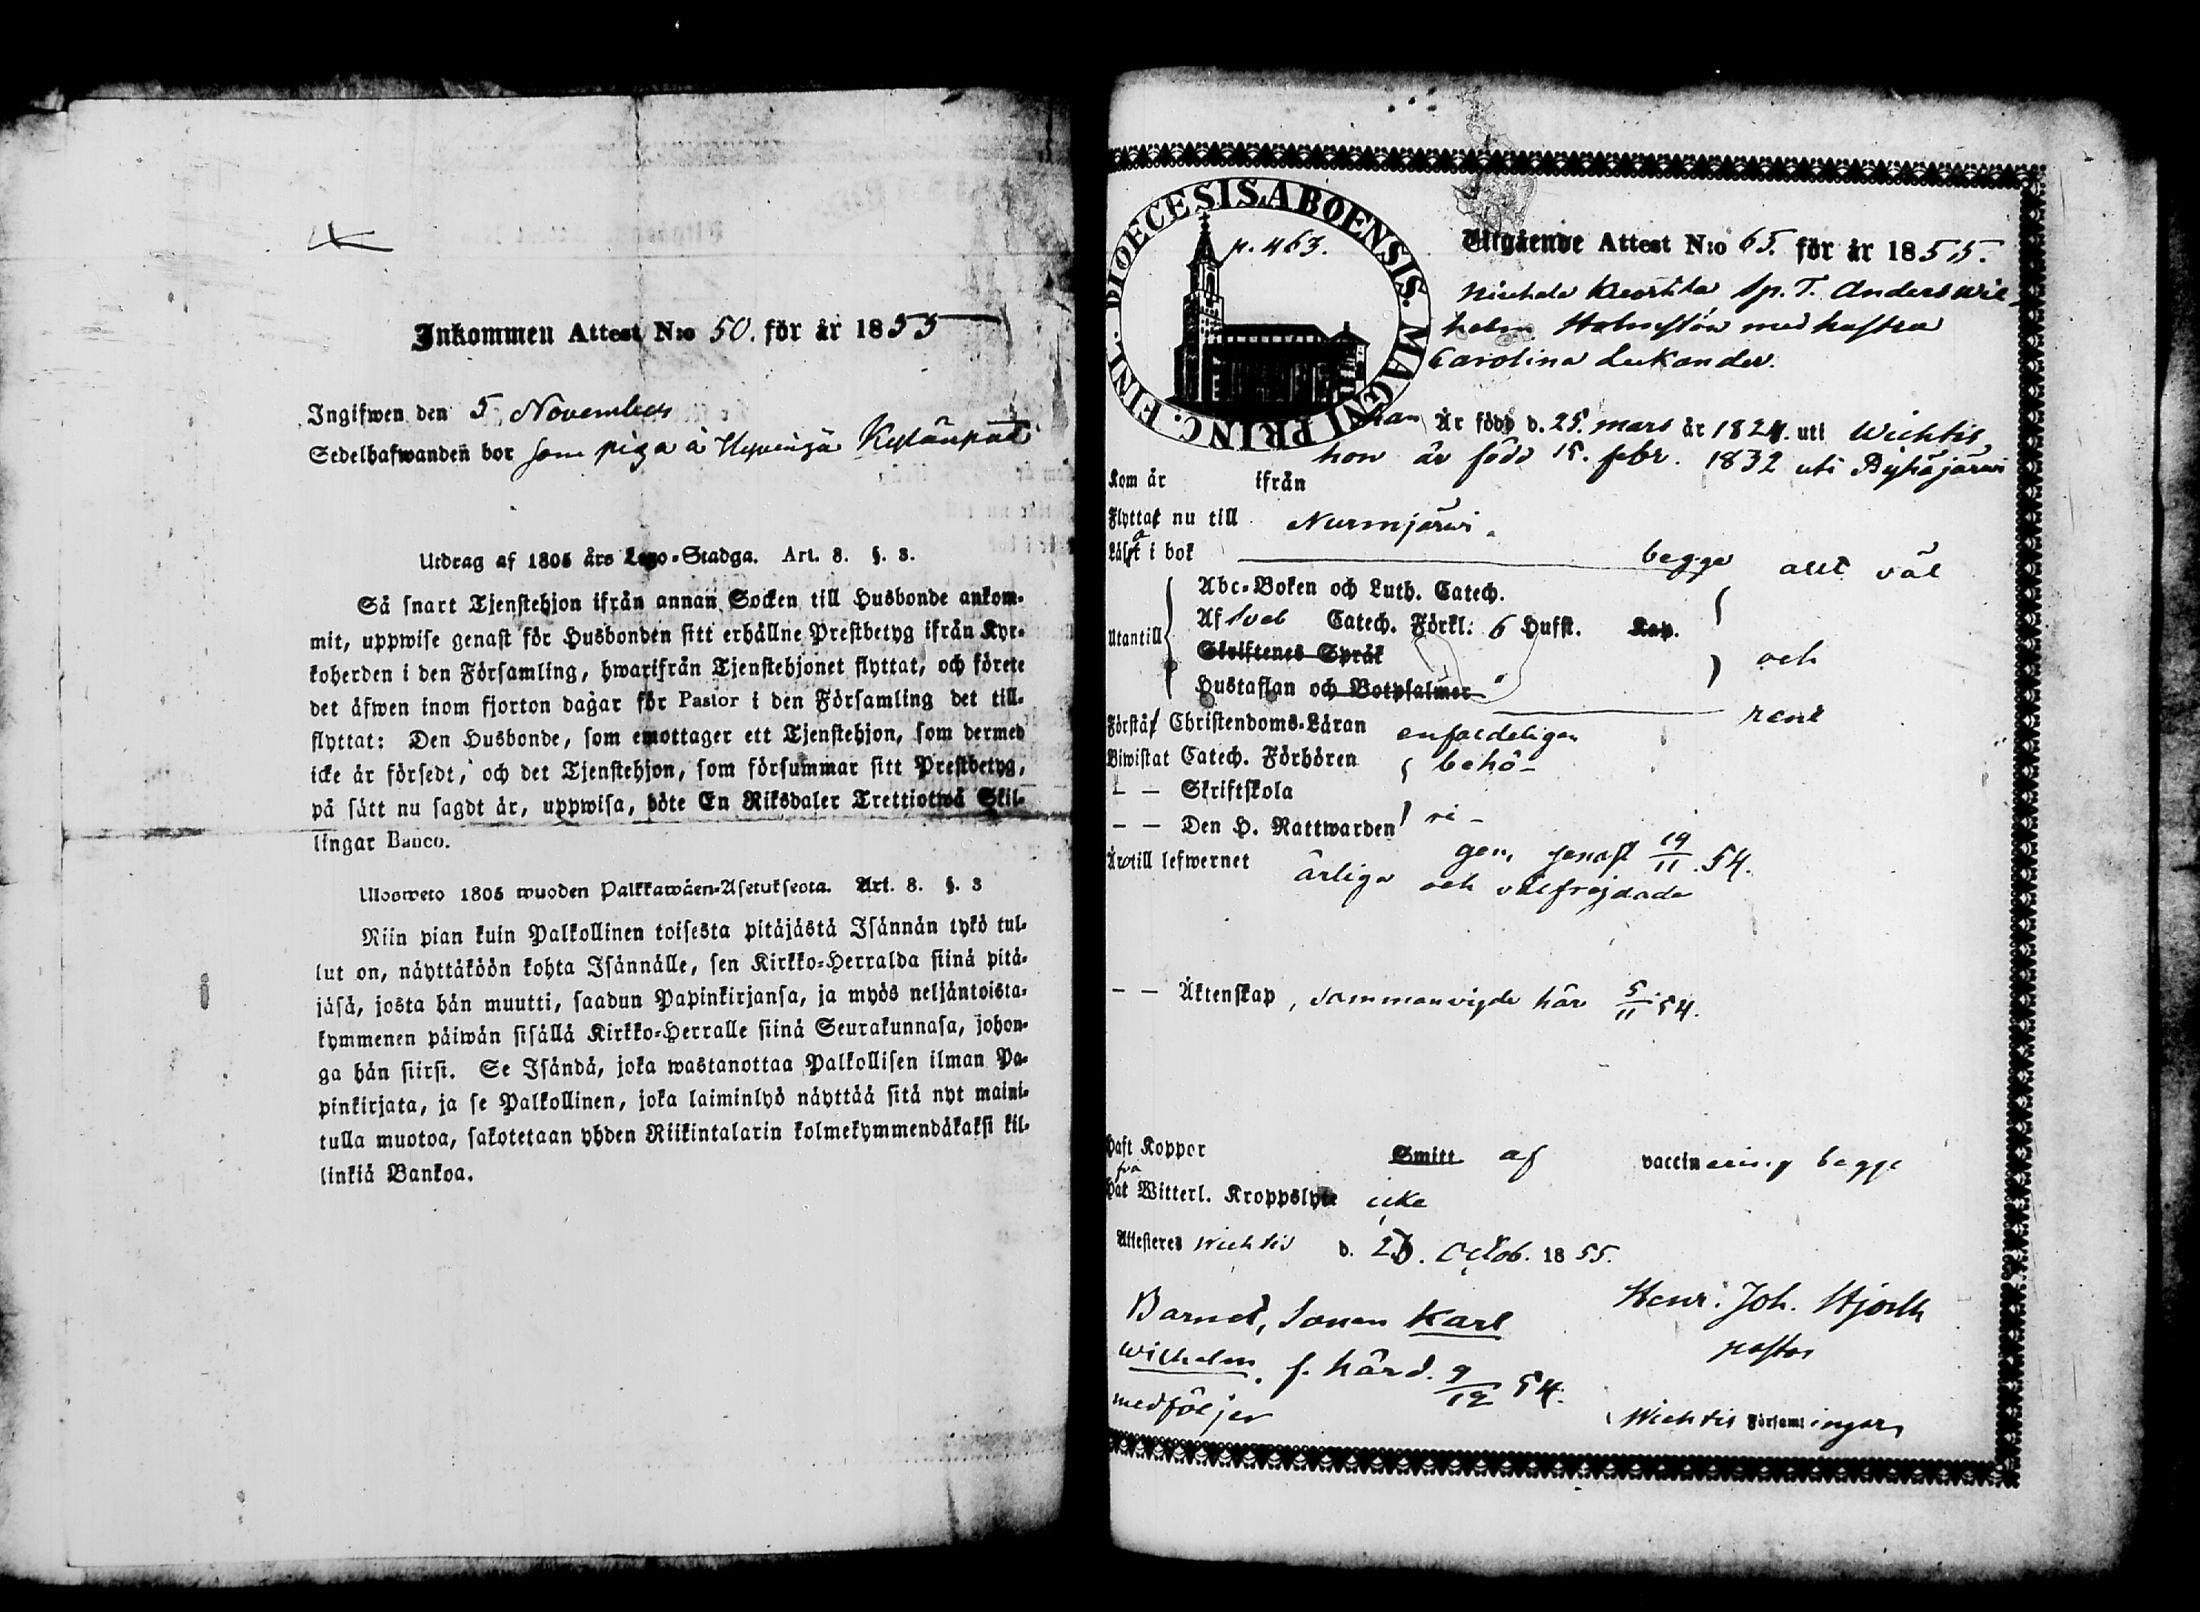 Inkommen Attest N:o 50. för år 1855
Ingifwen den 5 November
Sedelhafwanden bor som piga å Hyvingä Kylänpää
Utdrag af 1805 års Lego-Stadga. Art. 8. §. 3.
Så snart Tjenstehjon ifrån annan Socken till Husbonde ankom-
mit, uppwise genast för Husbonden sitt erhållne Prestbetyg ifrån Kyr-
koherden i den Församling, hwarifrån Tjenstehjonet flyttat, och förete
det äfwen inom fjorton dagar för Pastor i den Församling det till-
flyttat: Den Husbonde, som emottager ett Tjenstehjon, som dermed
icke är försedt, och det Tjenstehjon, som försummar sitt Prestbetyg,
på sätt nu sagdt är, uppwisa, böte En Riksdaler Trettiotwå Skil-
lingar Banco.
Ulosweto 1805 wuoden Palkkawäen-Asetuksesta. Art. 8. §. 3
Niin pian kuin Palkollinen toisesta pitäjästä Isännän tykö tul-
lut on, näyttäköön kohta Isännälle, sen Kirkko-Herralda siinä pitä-
jäsä, josta hän muutti, saadun Papinkirjansa, ja myös neljäntoista-
kymmenen päiwän sisällä Kirkko-Herralle siinä Seurakunnasa, johon-
ga hän siirsi. Se Isändä, joka wastanottaa Palkollisen ilman Pa-
pinkirjata, ja se Palkollinen, joka laiminlyö näyttää sitä nyt maini-
tulla muotoa, sakotetaan yhden Riikintalarin kolmekymmendäkaksi kil-
linkiä Bankoa.
FINL. DIOECESIS. ABOENSIS. MAGNI PRINC.
p. 463.
Utgående Attest N:o 65. för år 1855.
Sp. T. Anders Wil-
helm Holmstön med hustru
Carolina Lukander.
han Är född d. 25. mars år 1824. uti Wichtis,
hon är född 15. febr. 1832 uti Pyhäjärwi
Kom år ifrån
Flyttat nu till Nurmijärwi.
Läsa i bok begge allt väl
Utantill
Abc-Boken och Luth. Catech.
Af Sveb Catech. Förkl: 6 Hufst. Kap.
Skriftenes Språk och
Hustaflan och Botpsalmer
Förstå Christendoms-Läran enfaldeligen rent
Biwistat Catech. Förhören behö-
— — Skriftskola
— — Den H. Nattwarden ri-
gen, senast 19/11 54.
Äro till lefwernet ärliga och välfrejdade
— — Äktenskap, sammanvigde här 5/11 54.
Haft Koppor Smitt af vaccinering begge
Hat Witterl. Kroppslyte icke
Attesteres Wichtis d. 26. Octob. 1855.
Barnet, Sonen Karl
Wilhelm, f. härd. 9/12 54.
medföljer
Henr. Joh. Hjorth
pastor
Wichtis Församlingars